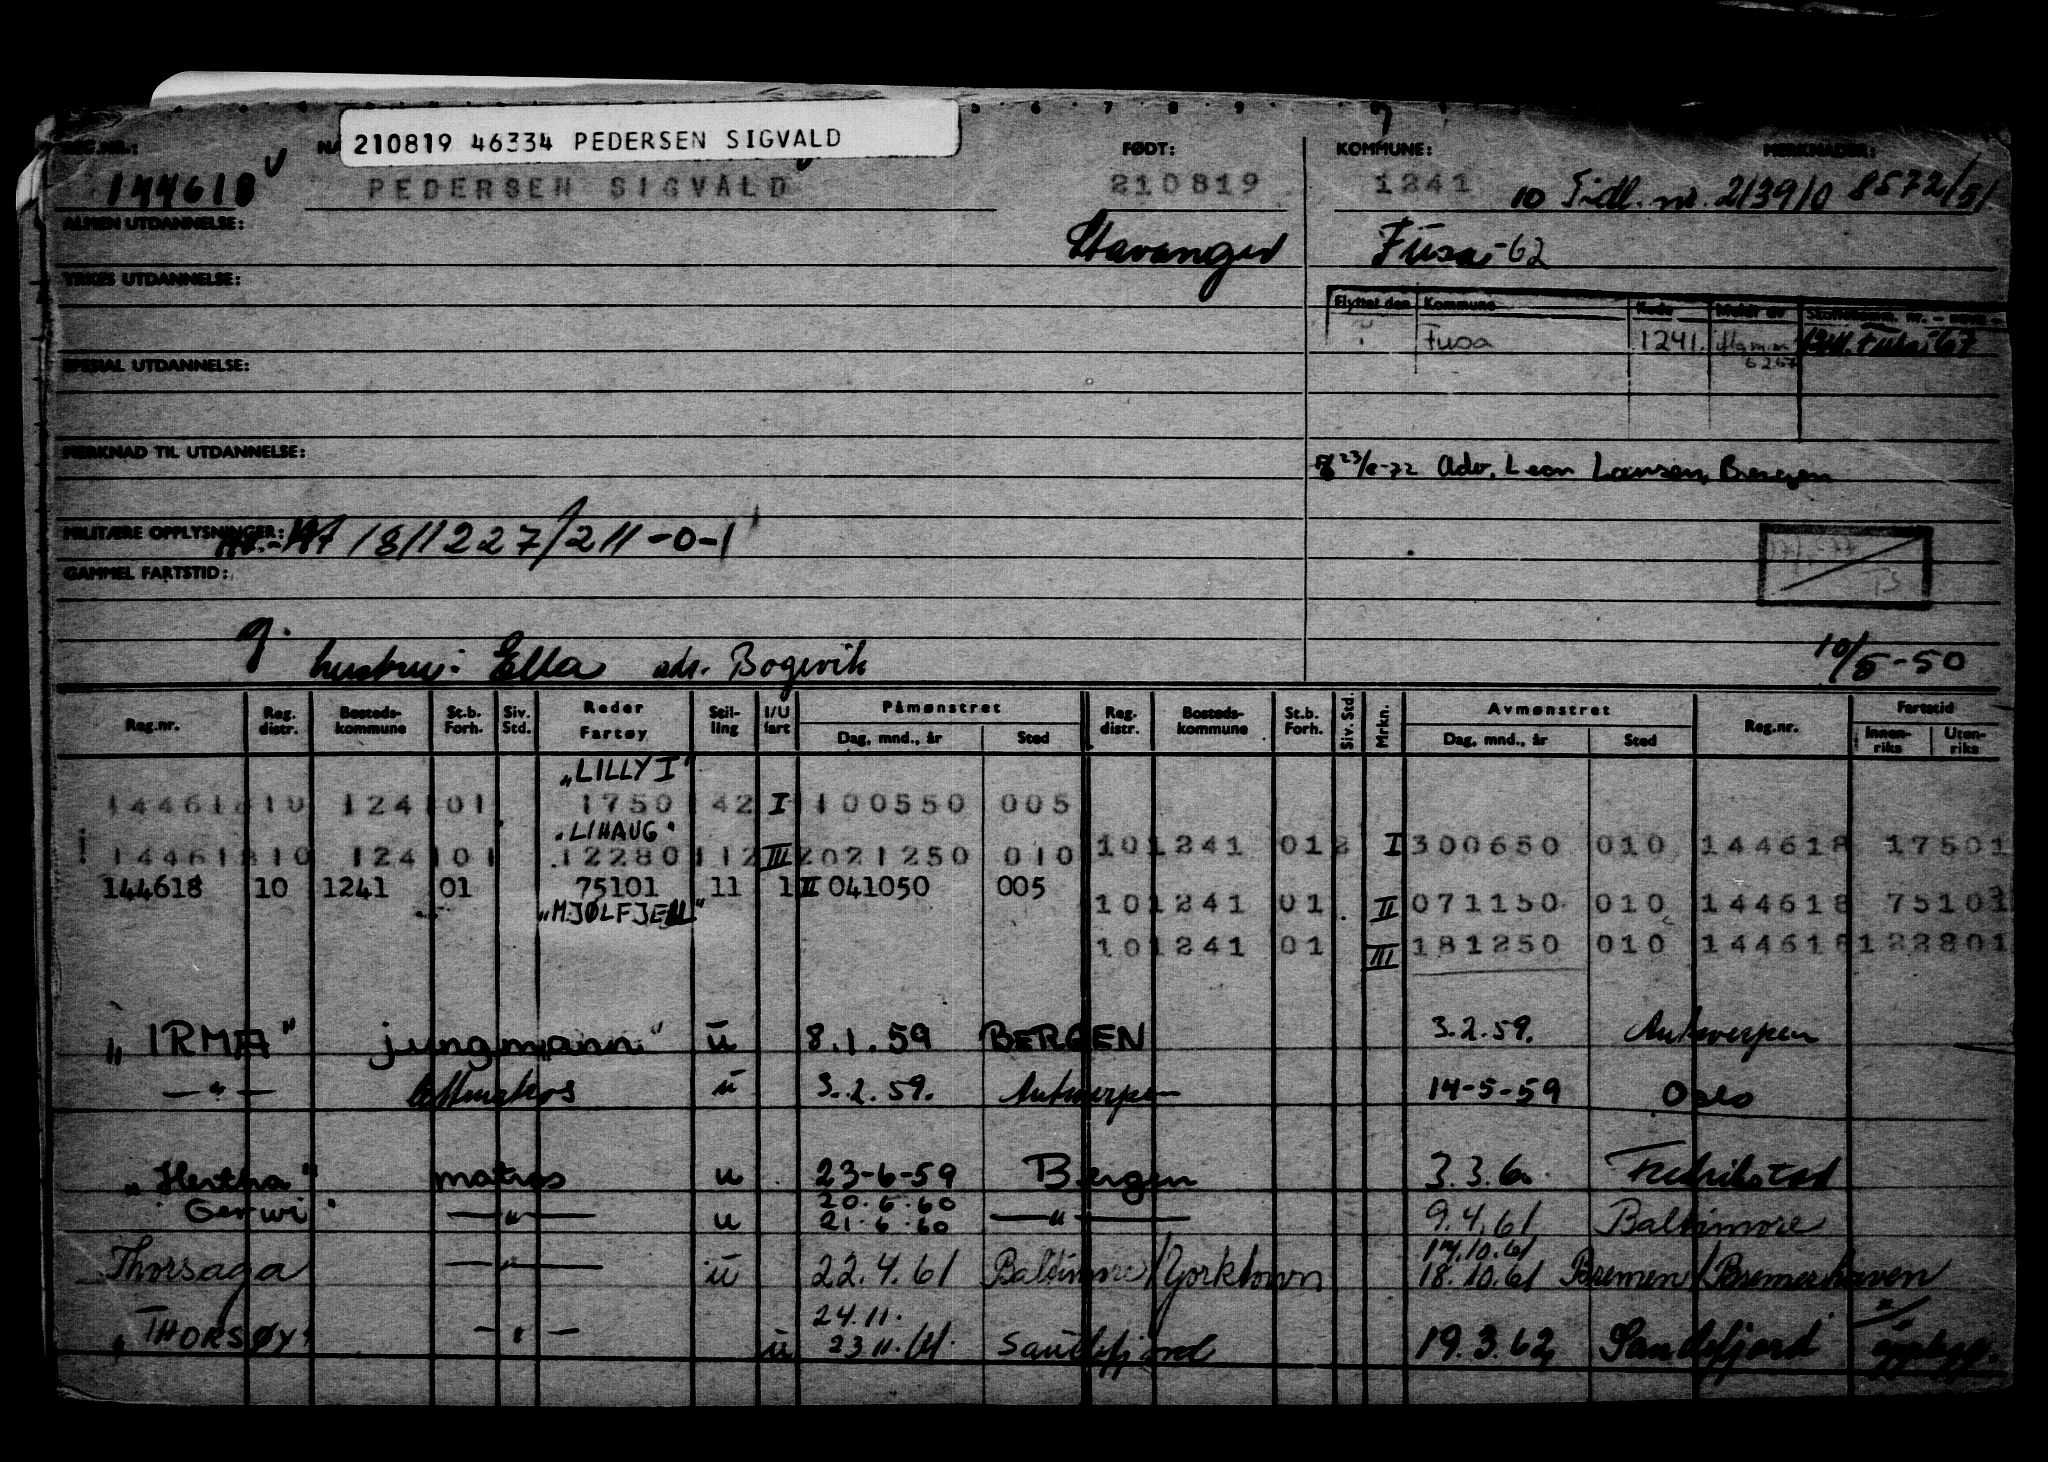 210819 46334 PEDERSEN SIGVALD
REG.NR.: FØDT: KOMMUNE: MERKNADER:
144618 PEDERSEN SIGVALD 210819 1241 10 Tidl. nr. 2139/0 8572/51
ALMEN UTDANNELSE: Stavanger Fusa -62
YRKES UTDANNELSE:
Flyttet den Kommune Kode Meldt av
Fusa 1241. 1241. Fusa 67
SPESIAL UTDANNELSE:
MERKNAD TIL UTDANNELSE: 23/6-72 Adv. Leon Larsen, Bergen
MILITÆRE OPPLYSNINGER: 1811227/211-0-1
GAMMEL FARTSTID:
g. hustru: Ella adr. Bogevik 10/5-50
Reg.nr. Reg. distr. Bosteds-kommune St.b. Forh. Siv. Std. Reder Fartøy Stil-ling I/U fart Påmønstret Dag, mnd., år Sted Reg. distr. Bosteds-kommune St.b. Forh. Siv. Std. Mrkn. Avmønstret Dag, mnd., år Sted Reg.nr. Fartstid Innen-riks Uten-riks
"LILLY I"
144618 10 124 101 1750 142 I 100550 005
"LIHAUG"
101241 012 I 300650 010 144618 17501
144618 10 124 101 12280 112 III 2021250 010
144618 10 1241 01 75101 11 1 II 041050 005
"MJØLFJELL" 101241 01 II 071150 010 144618 75101
101241 01 III 181250 010 144618 122801
"IRMA" jungmann u 8.1.59 BERGEN 3.2.59. Antwerpen
— " — lettmatros u 3.2.59. Antwerpen 14-5-59 Oslo
"Hertha" matros u 23-6-59 Bergen 3.3.60. Fredrikstad
20.6.60
Gerwi — " — u 21.6.60 — " — 9.4.61 Baltimore
17.10.61
Thorsaga — " — u 22.4.61 Baltimore/Yorktown 18.10.61 Bremen/Bremerhaven
24.11.
"THORSØY" — " — u 23.11.61. Sandefjord 19.3.62 Sandefjord